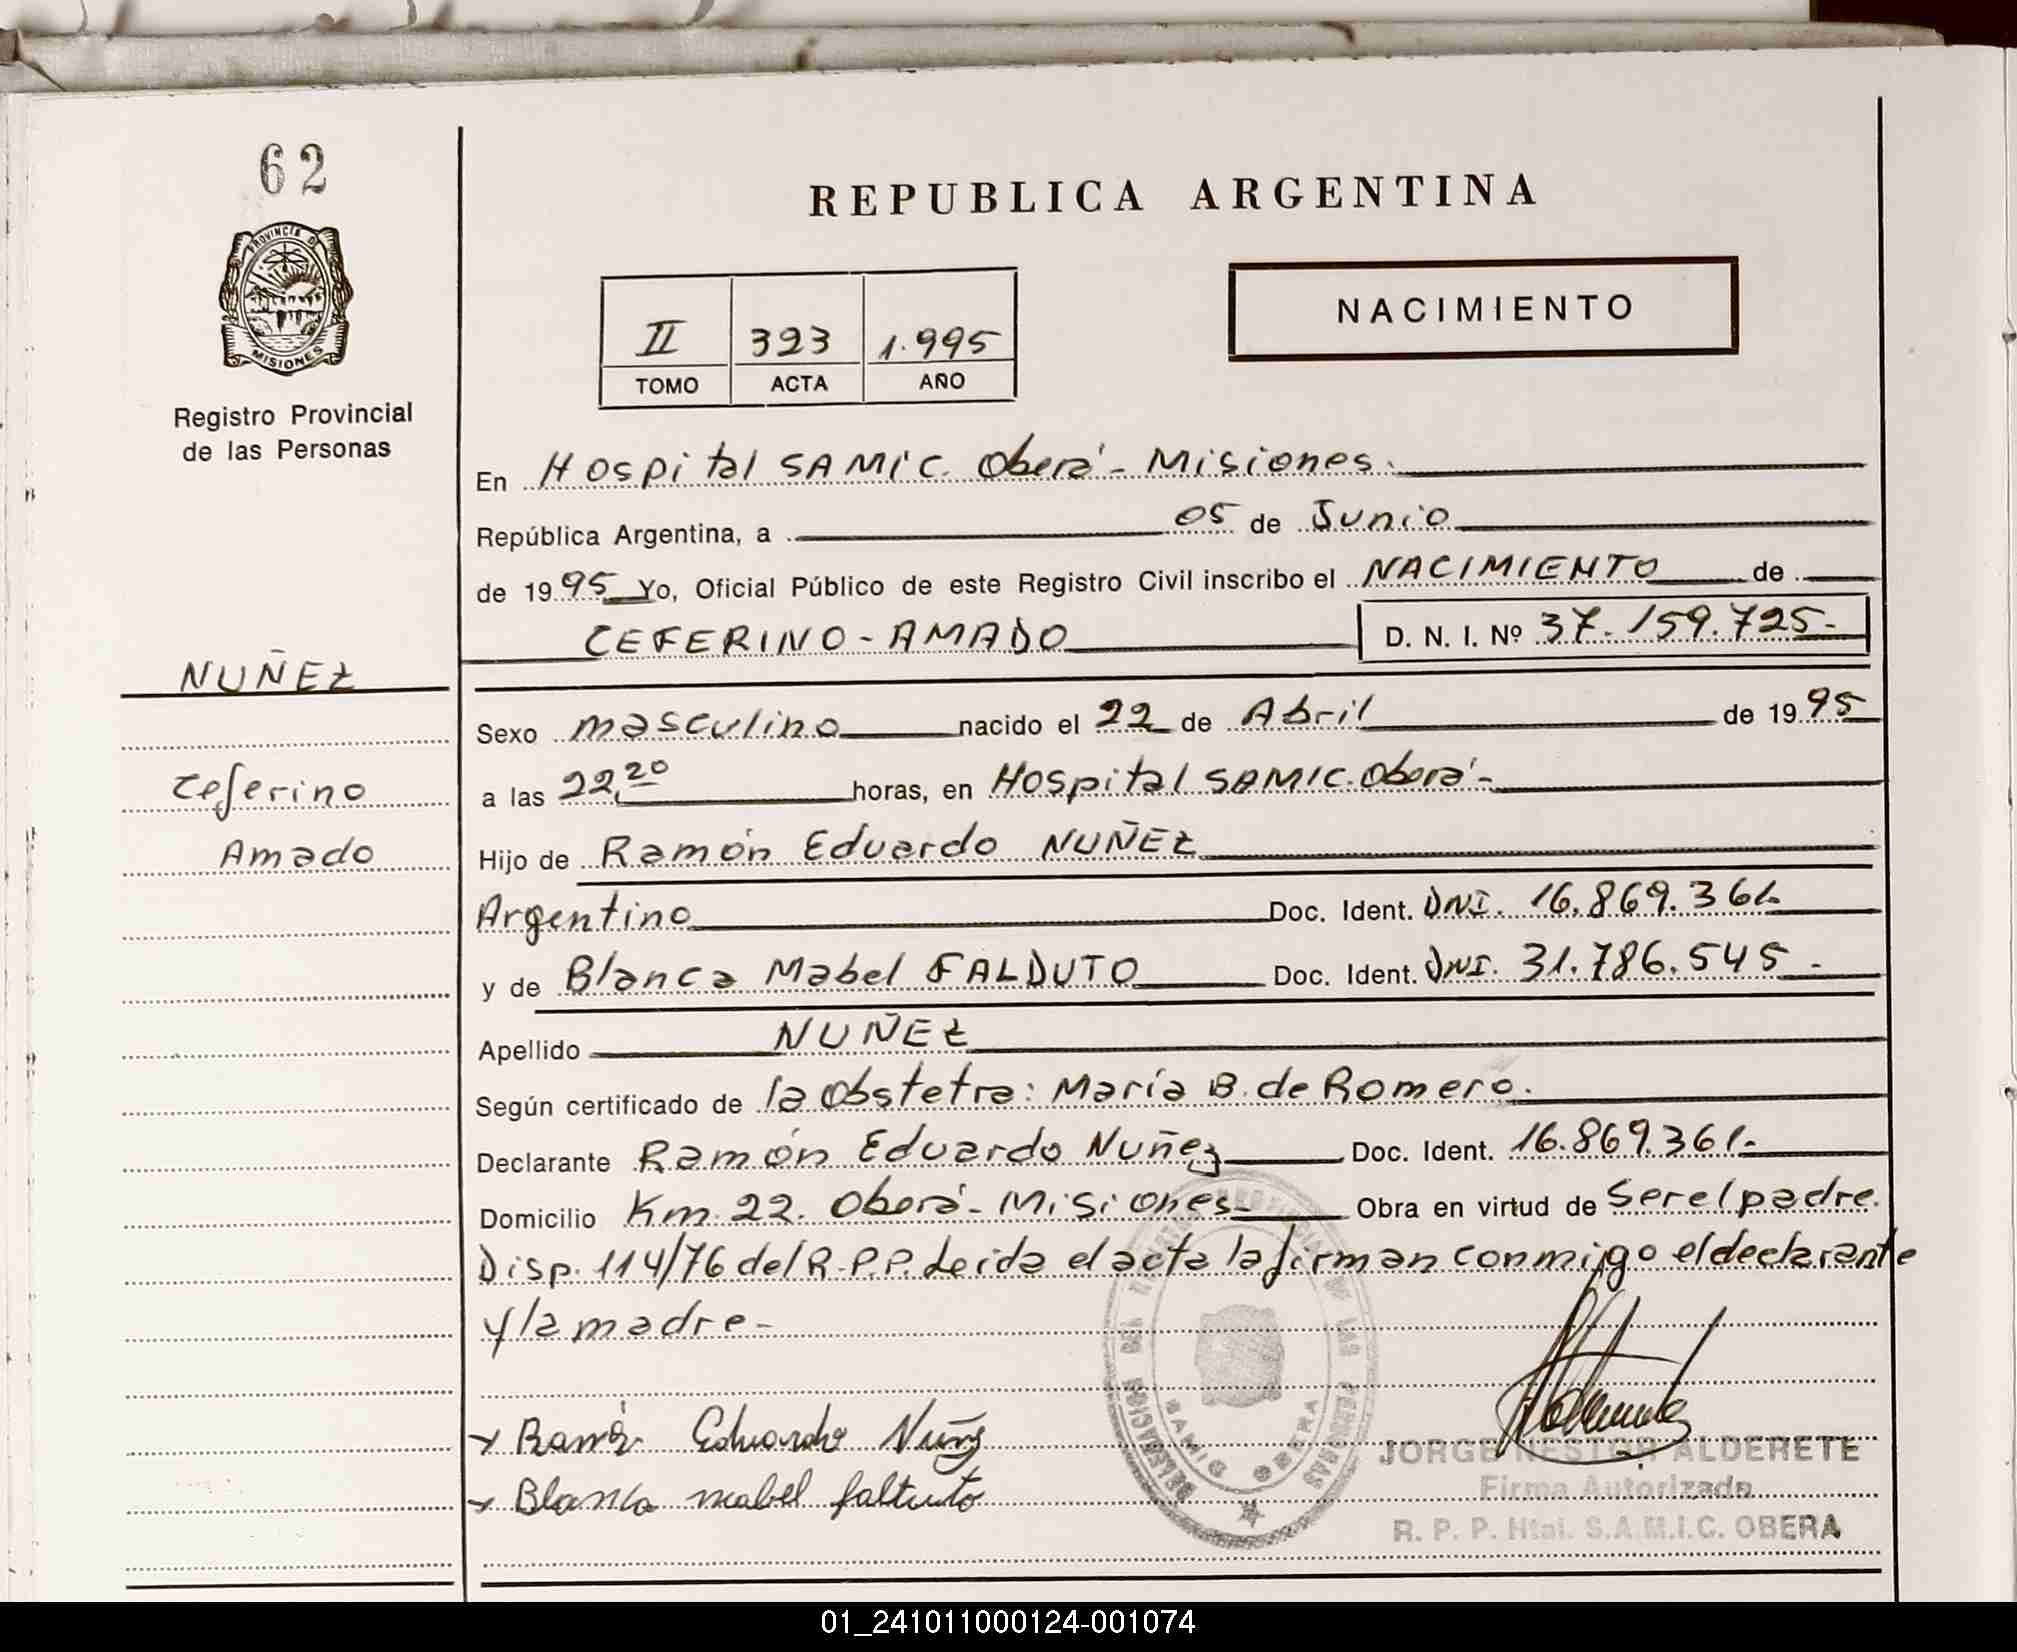 62
PROVINCIA D
MISIONES
Registro Provincial
de las Personas
REPUBLICA ARGENTINA
NACIMIENTO
II 323 1.995
TOMO ACTA AÑO
En Hospital SAMIC. Oberá - Misiones.
República Argentina, a 05 de Junio
de 1995 Yo, Oficial Público de este Registro Civil inscribo el NACIMIENTO de
CEFERINO - AMADO D. N. I. Nº 37.159.725.-
NUÑEZ
Sexo masculino nacido el 22 de Abril de 1995
Ceferino
a las 22,20 horas, en Hospital SAMIC. Oberá -
Amado
Hijo de Ramón Eduardo NUÑEZ
Argentino Doc. Ident. DNI. 16.869.361.-
y de Blanca Mabel FALDUTO Doc. Ident. DNI. 31.786.545 -
Apellido NUÑEZ
Según certificado de la Obstetra: María B. de Romero.
Declarante Ramón Eduardo Nuñez Doc. Ident. 16.869.361.-
Domicilio Km. 22. Oberá - Misiones - Obra en virtud de Ser el padre.
Disp. 114/76 del R.P.P. Leida el acta la firman conmigo el declarante
y la madre -
Ramón Eduardo Nuñez
Blanca mabel faltuto
DELEGACION DEL REGISTRO PROVINCIAL DE LAS PERSONAS
SAMIC OBERA
JORGE NESTOR ALDERETE
Firma Autorizada
R. P. P. Htal. S.A.M.I.C. OBERA
01_241011000124-001074